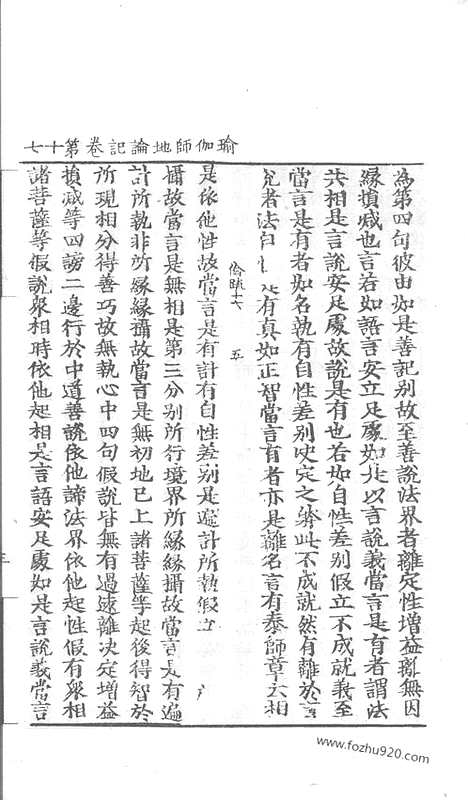 瑜伽師地論記卷第十七
為第四句彼由如是善記別故至善說法界者離定性增益離無因
緣損減也言若如語言安立足處如此以言說義當言是有者謂法
共相是言說安足處故說是有也若如自性差別假立不成就義至
當言是有者如名執有自性差別決定之 此不成就然有離於言
 者法 有真如正智當言有者亦是離名言有泰師章云相
倫 十六 五
是依他性故當言是有計有自性差別是遍計所執假立
攝故當言是無相是第三分別所行境界所緣緣攝故當言是有遍
計所執非所緣緣攝故當言是無初地已上諸菩薩等起後得智於
所現相分得善巧故無執心中四句假說皆無有過遠離決定增益
損減等四謗二邊行於中道善說依他諦法界依他起性假有衆相
諸菩薩等假說衆相時依他起相是言語安足處如是言說義當言
www.fozhu920.com